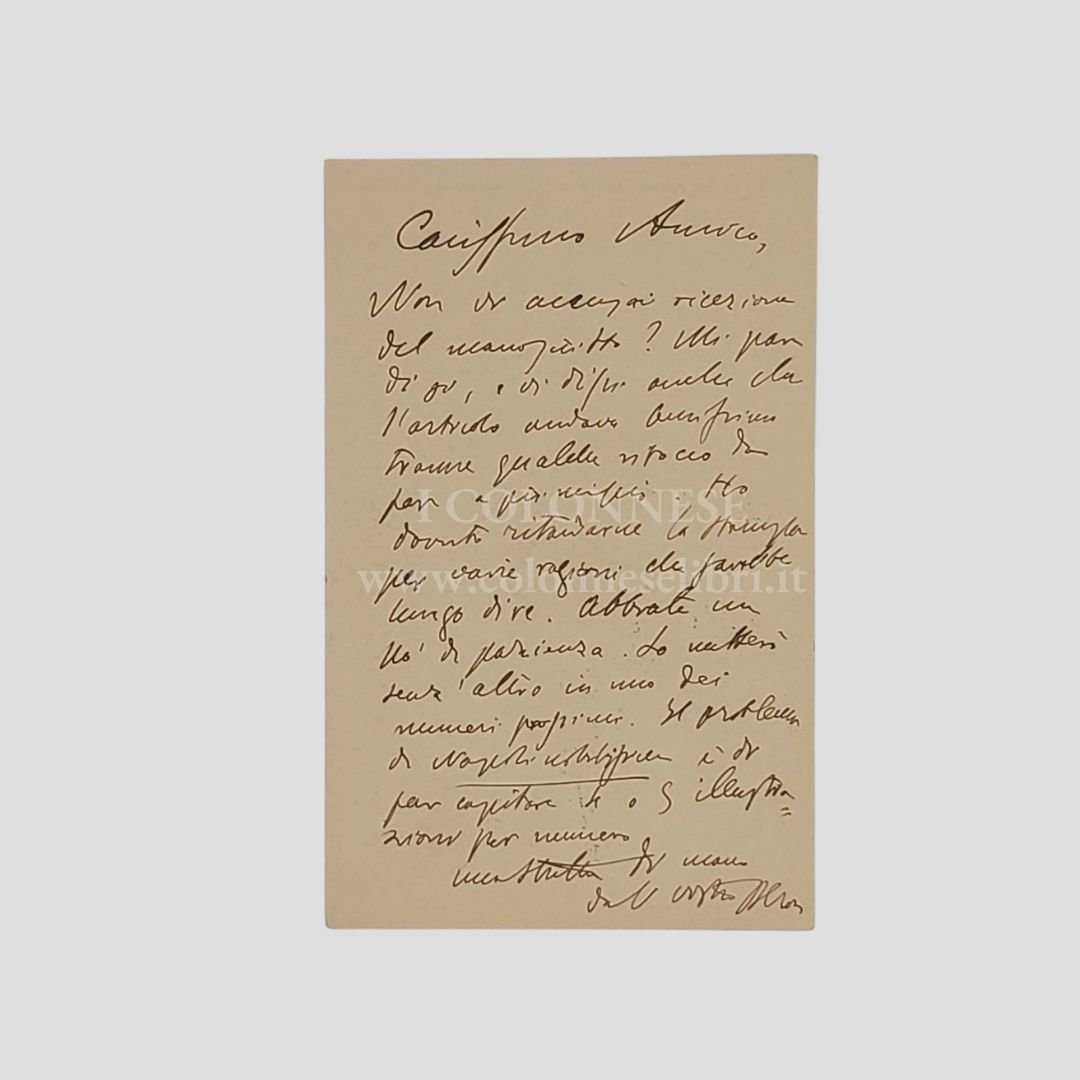 Carissimo Amico,
Non vi accusai ricezione
del manoscritto? Mi pare
di sì, e vi dissi anche che
l'articolo andava benissimo
tranne qualche ritocco da
fare . Ho
dovuto ritardarne la stampa
per varie ragioni che sarebbe
lungo dire. Abbiate un
po' di pazienza. Lo metterò
senz'altro in uno dei
numeri prossimi. Il problema
di Napoli nobilissima è di
far capitare 4 o 5 illustra=
zioni per numero
una stretta di mano
dal vostro BCroce
I COLONNESE
www.colonneselibri.it